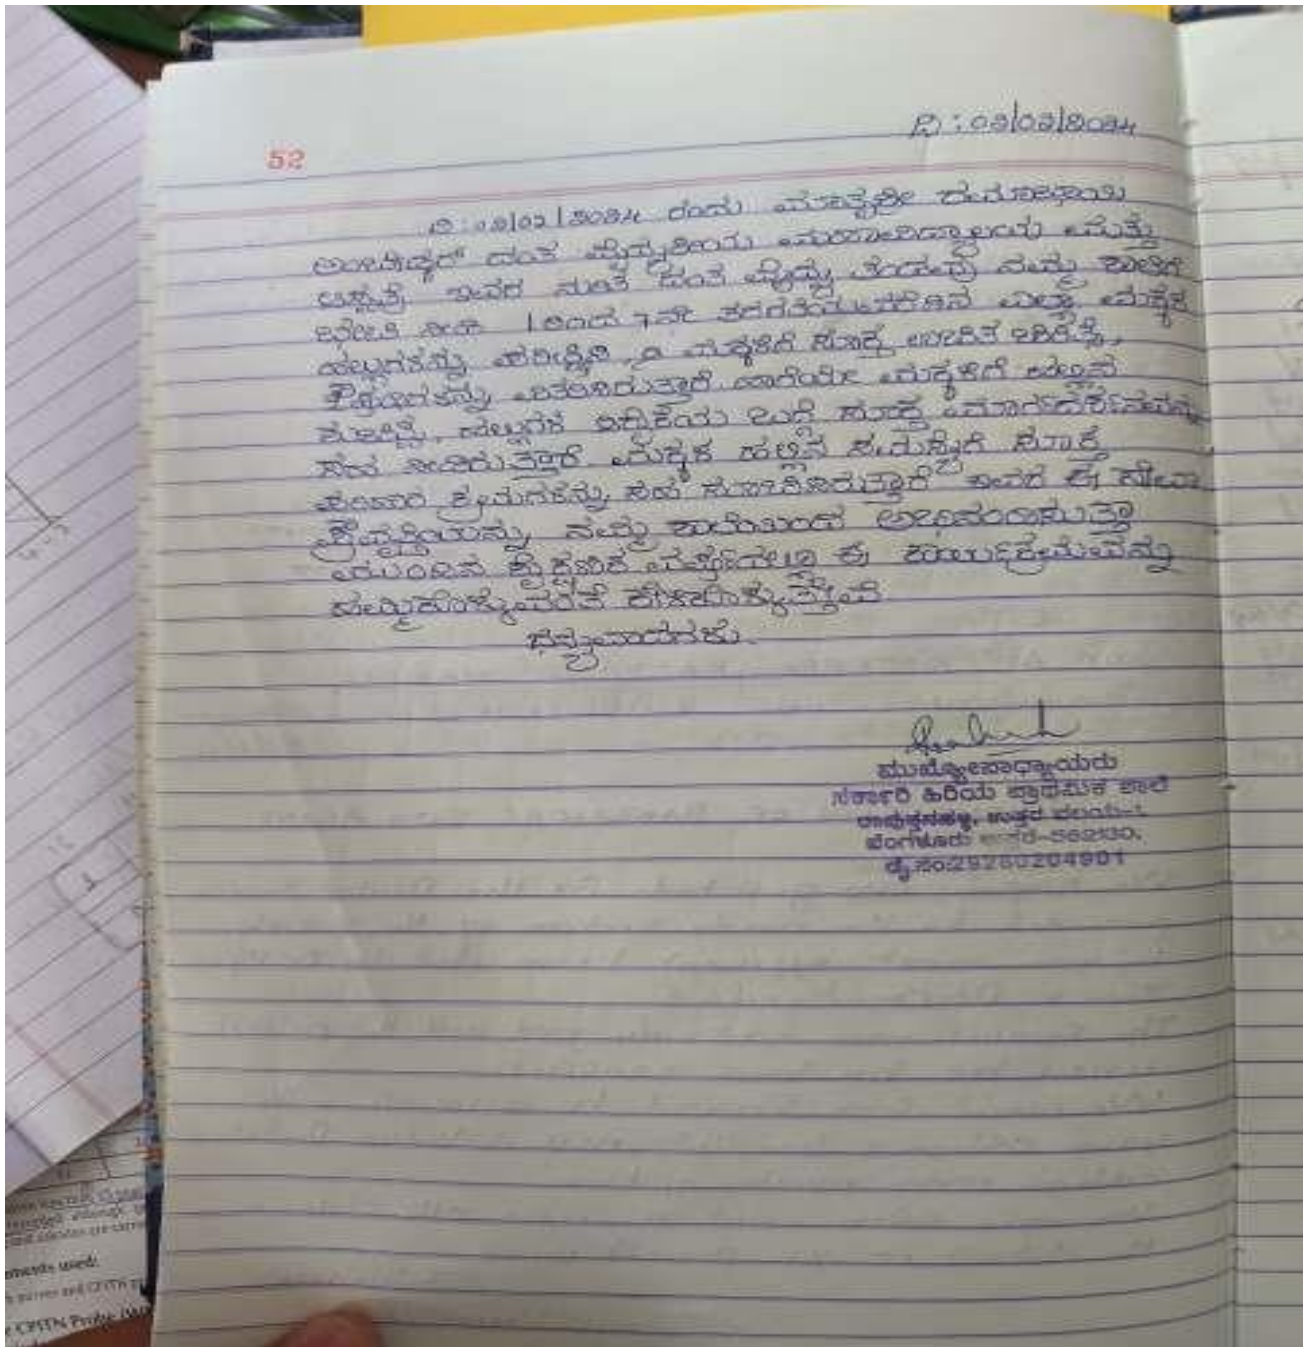 52
ದಿ : 02/02/2024
ದಿ : 02/02/2024 ರಂದು ಮಾತೃಶ್ರೀ ರಮಾಬಾಯಿ
ಅಂಬೇಡ್ಕರ್ ದಂತ ವೈದ್ಯಕೀಯ ಮಹಾವಿದ್ಯಾಲಯ ಮತ್ತು
ಆಸ್ಪತ್ರೆ ಇವರ ನುರಿತ ದಂತ ವೈದ್ಯ ತಂಡವು ನಮ್ಮ ಶಾಲೆಗೆ
ಭೇಟಿ ನೀಡಿ 1 ರಿಂದ 7ನೇ ತರಗತಿಯವರೆಗಿನ ಎಲ್ಲಾ ಮಕ್ಕಳ
ಹಲ್ಲುಗಳನ್ನು ಪರೀಕ್ಷಿಸಿ, ಮಕ್ಕಳಿಗೆ ಸೂಕ್ತ ಉಚಿತ
ಔಷಧಿಗಳನ್ನು ವಿತರಿಸಿರುತ್ತಾರೆ ಹಾಗೆಯೇ ಮಕ್ಕಳಿಗೆ ಹಲ್ಲಿನ
ಹಲ್ಲುಗಳ ಬಗ್ಗೆ ಸೂಕ್ತ ಮಾರ್ಗದರ್ಶನವನ್ನು
ಸಹ ನೀಡಿರುತ್ತಾರೆ ಮಕ್ಕಳ ಹಲ್ಲಿನ ಸಮಸ್ಯೆಗೆ ಸೂಕ್ತ
ಪರಿಹಾರ ಕ್ರಮಗಳನ್ನು ಸಹ ಸೂಚಿಸಿರುತ್ತಾರೆ ಇವರ ಈ ಸೇವಾ
ನಮ್ಮ ಶಾಲೆಯಿಂದ ಅಭಿನಂದಿಸುತ್ತಾ
ಮುಂದಿನ ಶೈಕ್ಷಣಿಕ ವರ್ಷದಲ್ಲೂ ಈ ಕಾರ್ಯಕ್ರಮವನ್ನು
ಹಮ್ಮಿಕೊಳ್ಳುವಂತೆ ಕೇಳಿಕೊಳ್ಳುತ್ತೇವೆ
ಧನ್ಯವಾದಗಳು.
ಮುಖ್ಯೋಪಾಧ್ಯಾಯರು
ಸರ್ಕಾರಿ ಹಿರಿಯ ಪ್ರಾಥಮಿಕ ಶಾಲೆ
ಉತ್ತರ ವಲಯ-1
ಬೆಂಗಳೂರು ಉತ್ತರ-562130.
ಡೈ.ಸಂ:29280204901